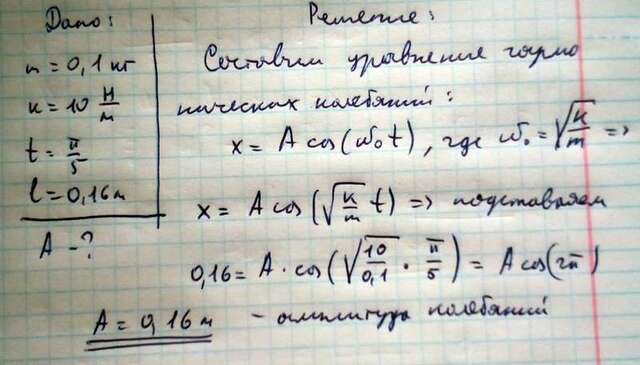 Дано:
m = 0,1 кг
к = 10 Н/м
t = π/5
l = 0,16 м
A - ?
Решение:
Составим уравнение гармо
нических колебаний:
x = A cos(ω₀t), где ω₀ = √(к/m) =>
x = A cos(√(к/m) t) => подставляем
0,16 = A · cos(√(10/0,1) · π/5) = A cos(2π)
A = 0,16 м - амплитуда колебаний